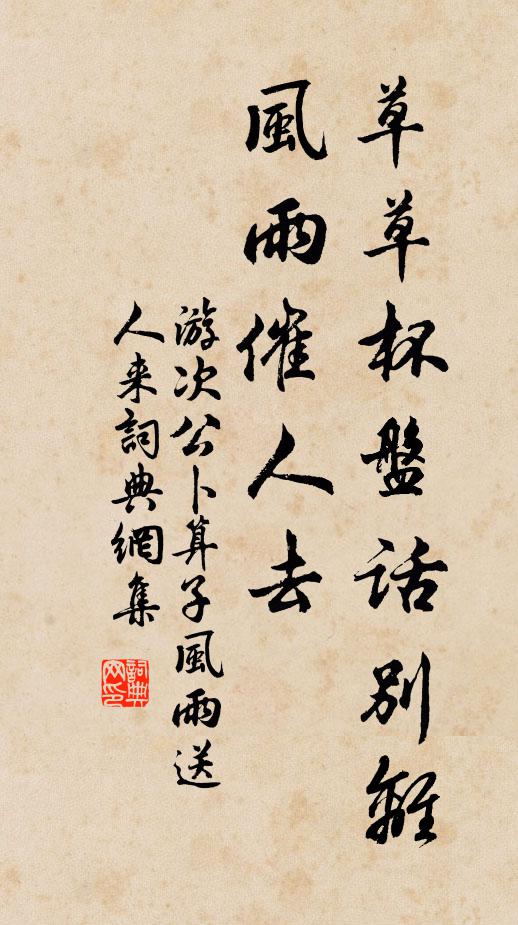 草草杯盤話別離
風雨催人去
游次公卜算子風雨送
人来詞典網集
詞典
网印